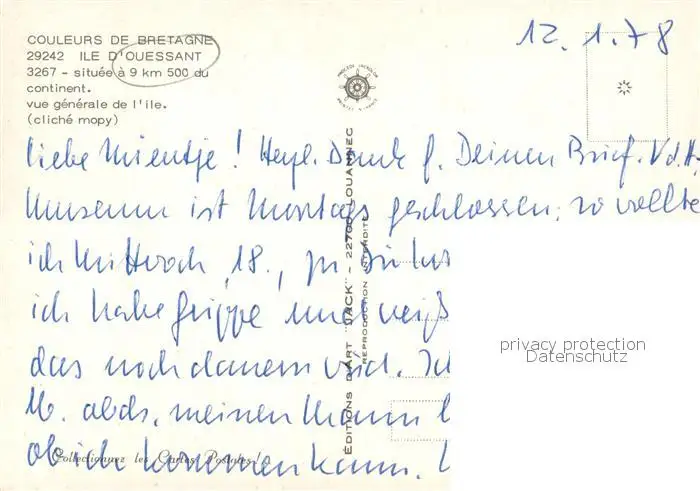 COULEURS DE BRETAGNE
29242 ILE D'OUESSANT
3267 - située à 9 km 500 du
continent.
vue générale de l'ile.
(cliché mopy)
12. 1. 78
Liebe Mientje! Herzl. Dank f. Deinen Brief. V.d.H.
Museum ist Montags geschlossen, so wollte
ich Mittwoch, 18., zu
ich habe Grippe und weiß
das noch dauern wird. Ich
16. abds. meinen Mann
ob ich kommen kann.
Collectionnez les Cartes Postales!
EDITIONS D'ART "JACK" - 22700 LOUANNEC
REPRODUCTION INTERDITE
privacy protection
Datenschutz